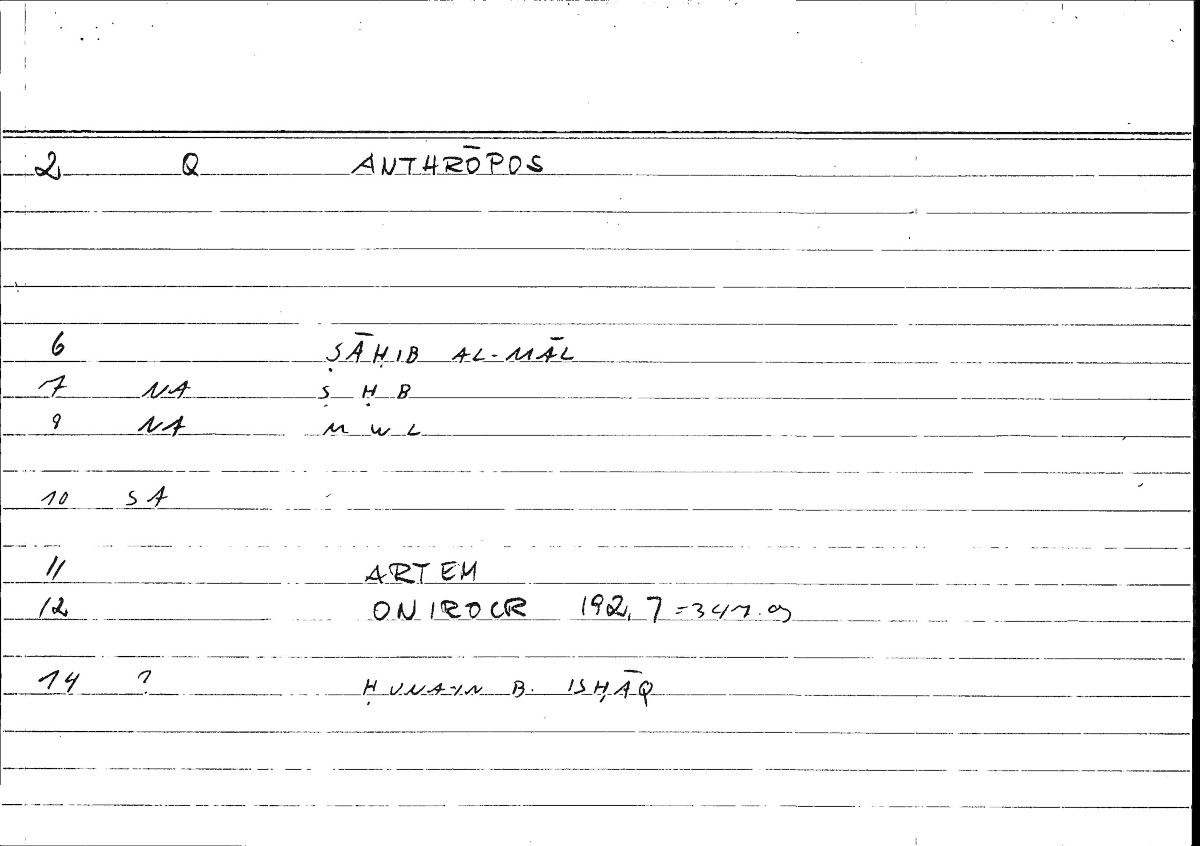 2 Q ANTHRŌPOS
6 ṢĀḤIB AL-MĀL
7 NA Ṣ Ḥ B
9 NA M W L
10 SA
11 ARTEM
12 ONIROCR 192, 7 = 347.9
14 ? ḤUNAIN B. ISḤĀQ